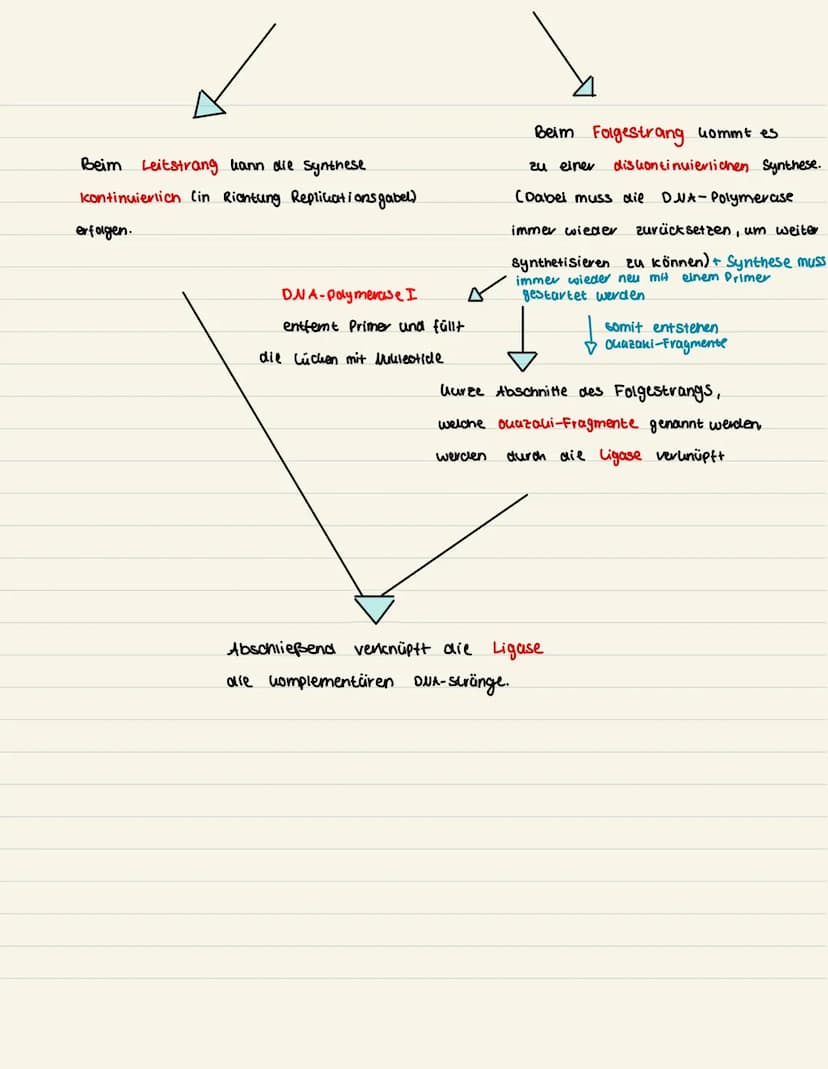 Beim Leitstrang kann die Synthese
kontinuierlich (in Richtung Replikationsgabel)
erfolgen.
Beim Folgestrang kommt es
zu einer diskontinuierlichen Synthese.
(Dabei muss die DNA-Polymerase
immer wieder zurücksetzen, um weiter
synthetisieren zu können) + Synthese muss
immer wieder neu mit einem Primer
gestartet werden
DNA-Polymerase I
entfernt Primer und füllt
die Lücken mit Nukleotide
somit entstehen
Okazaki-Fragmente
Kurze Abschnitte des Folgestrangs,
welche Okazaki-Fragmente genannt werden,
werden durch die Ligase verknüpft
Abschließend verknüpft die Ligase
die komplementären DNA-Stränge.